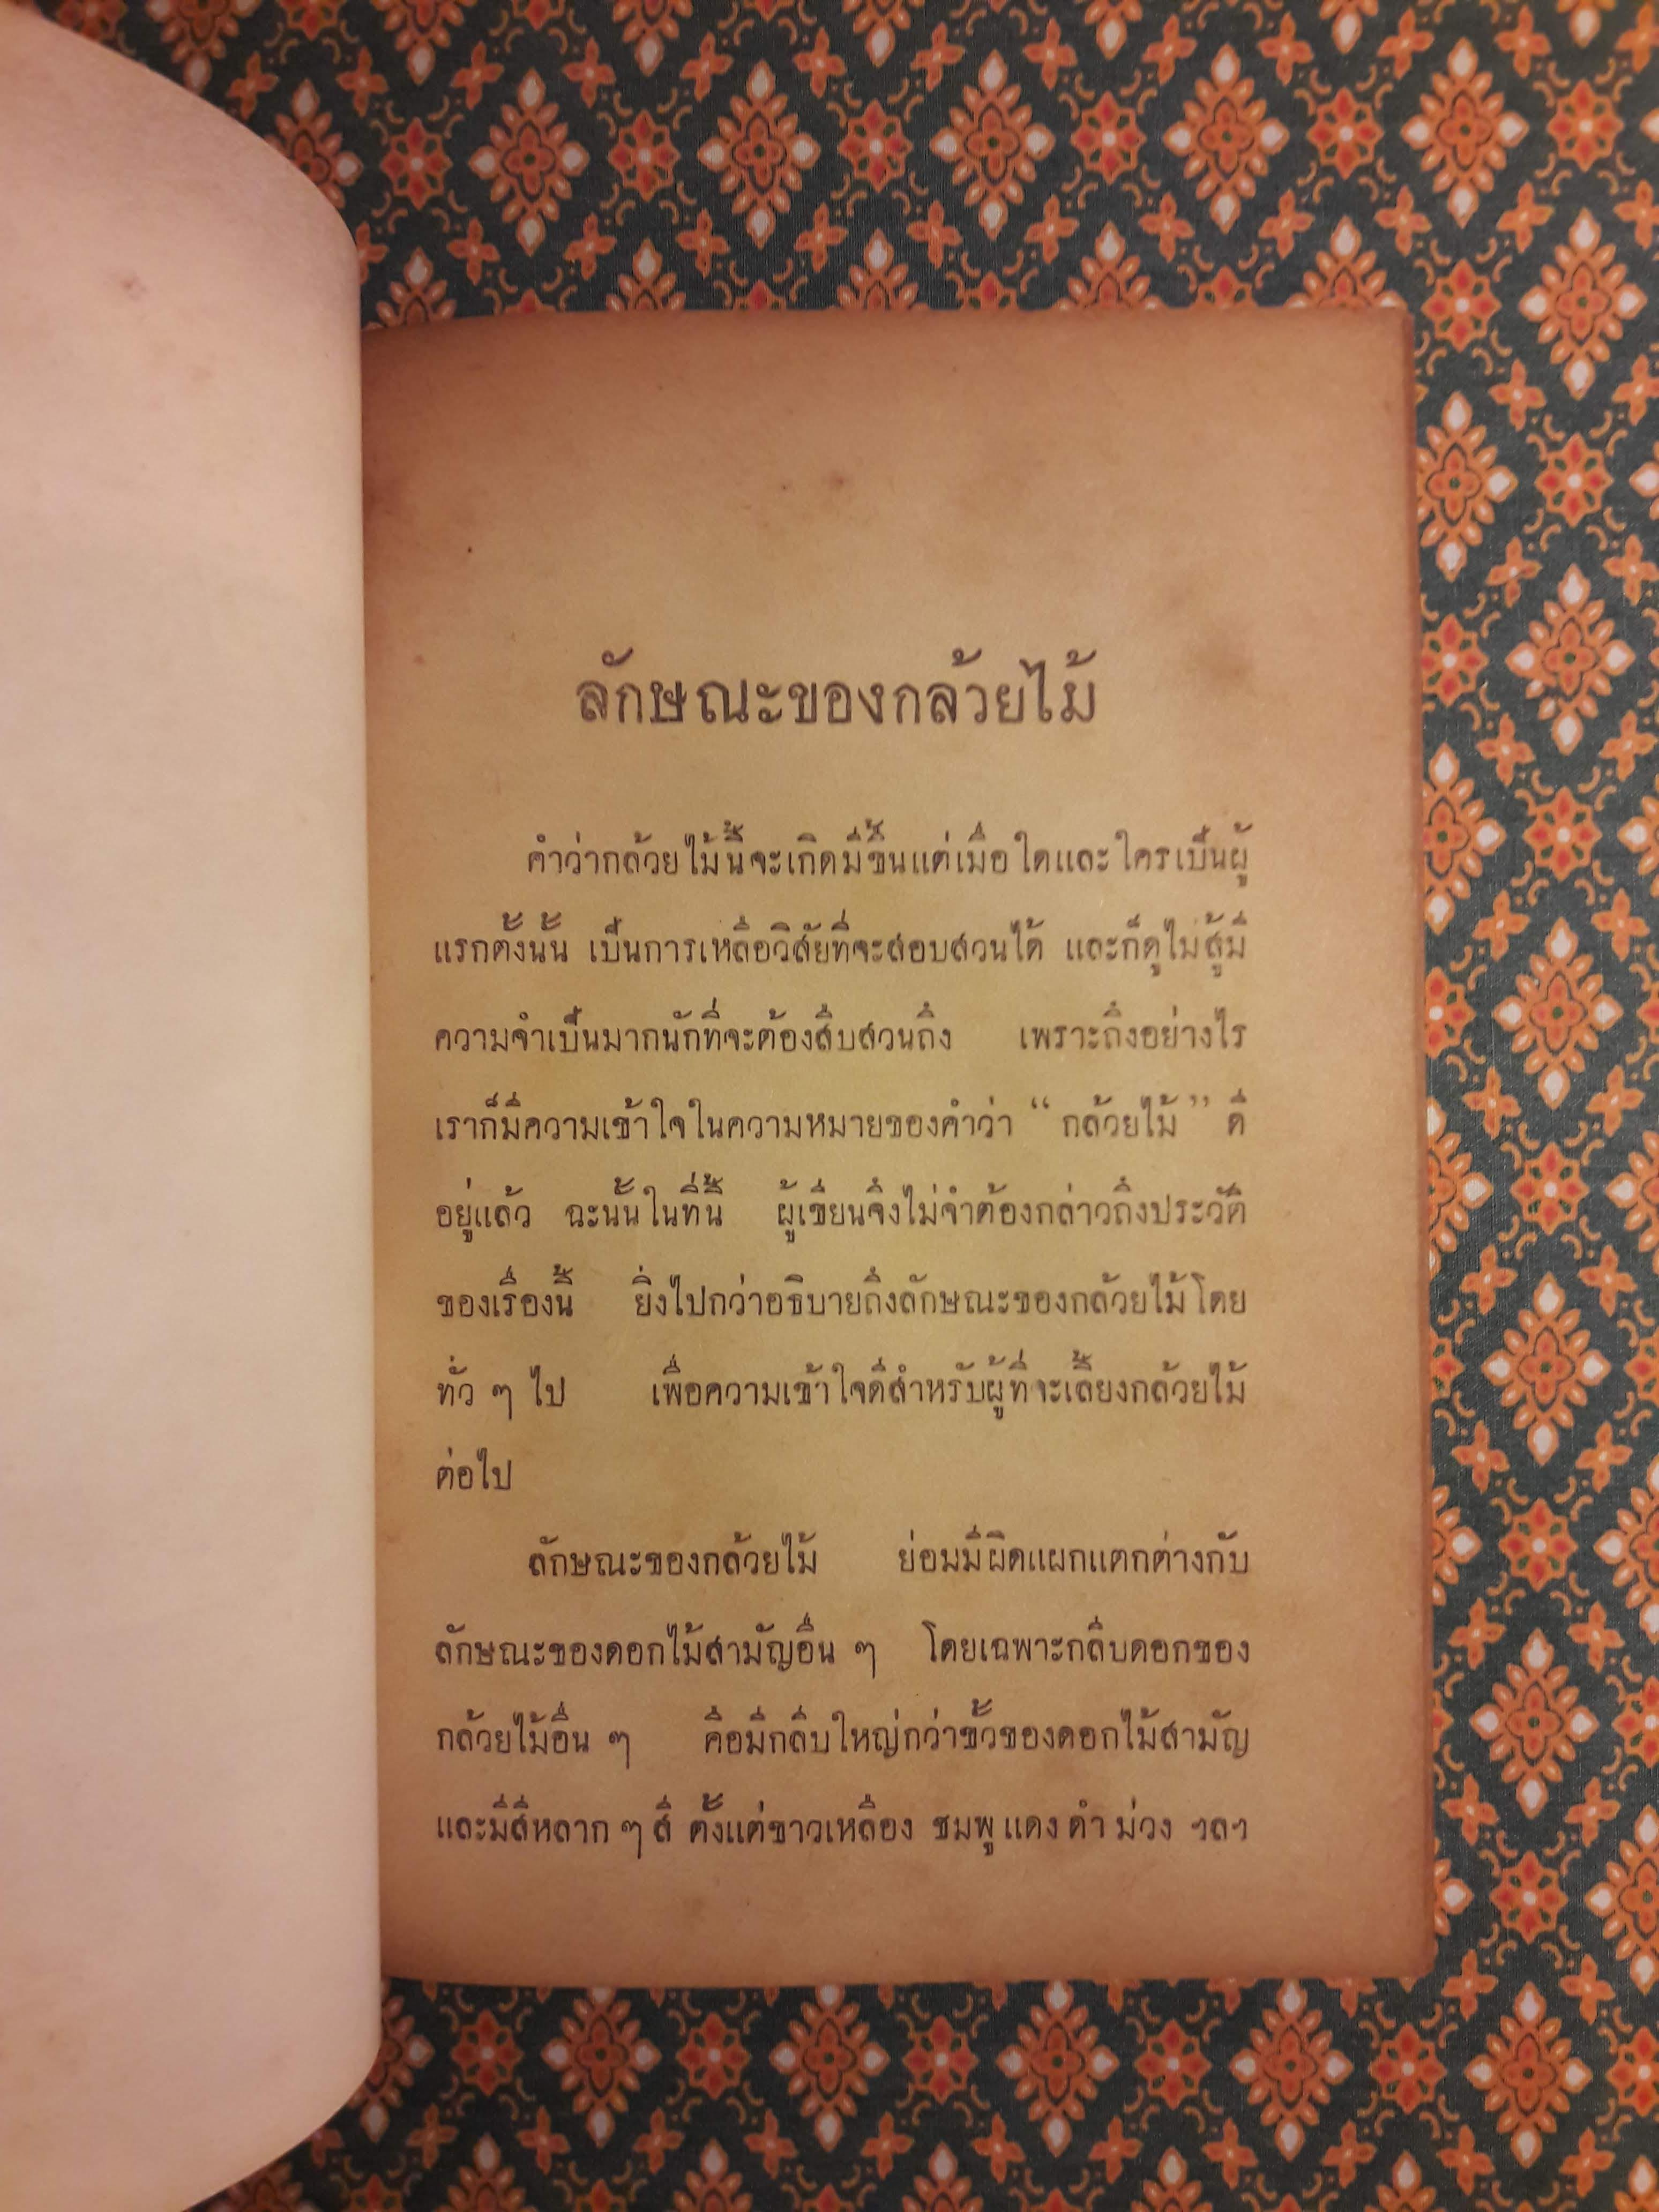 ลักษณะของกล้วยไม้
คำว่ากล้วยไม้นี้จะเกิดมีขึ้นแต่เมื่อใดและใครเป็นผู้
แรกตั้งนั้น เป็นการเหลือวิสัยที่จะสอบสวนได้ และก็ดูไม่สู้มี
ความจำเป็นมากนักที่จะต้องสืบสวนถึง เพราะถึงอย่างไร
เราก็มีความเข้าใจในความหมายของคำว่า “ กล้วยไม้ ” ดี
อยู่แล้ว ฉะนั้นในที่นี้ ผู้เขียนจึงไม่จำต้องกล่าวถึงประวัติ
ของเรื่องนี้ ยิ่งไปกว่าอธิบายถึงลักษณะของกล้วยไม้โดย
ทั่ว ๆ ไป เพื่อความเข้าใจดีสำหรับผู้ที่จะเลี้ยงกล้วยไม้
ต่อไป
ลักษณะของกล้วยไม้ ย่อมมีผิดแผกแตกต่างกับ
ลักษณะของดอกไม้สามัญอื่น ๆ โดยเฉพาะกลีบดอกของ
กล้วยไม้อื่น ๆ คือมีกลีบใหญ่กว่าขั้วของดอกไม้สามัญ
และมีสีหลาก ๆ สี ตั้งแต่ขาวเหลือง ชมพู แดง ดำ ม่วง ฯลฯ